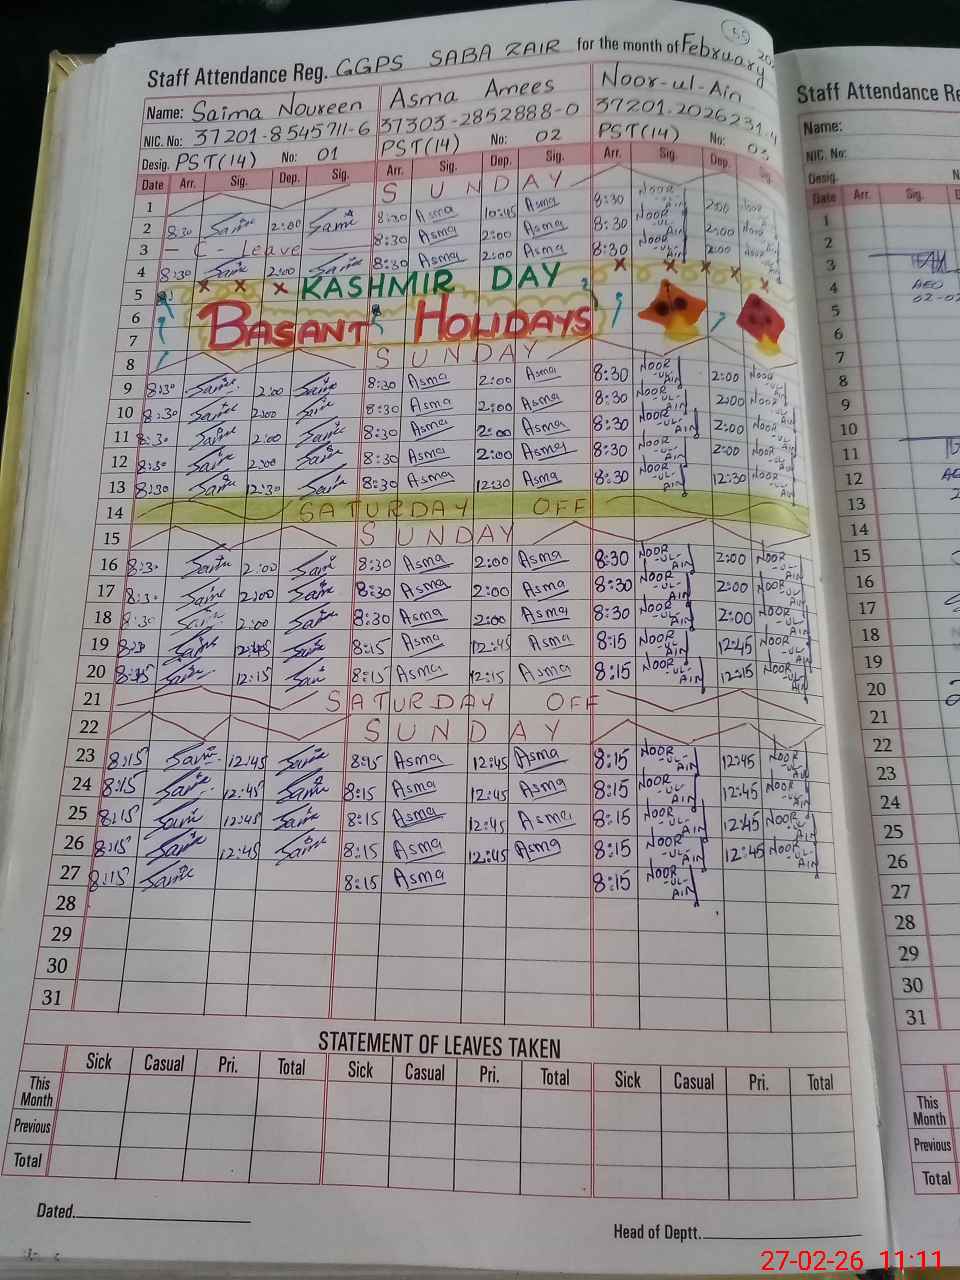 55
Staff Attendance Reg. GGPS SABA ZAIR for the month of February
Name: Saima Noureen Asma Amees Noor-ul-Ain
NIC. No: 37201-8545711-6 37303-2852888-0 37201-2026231-4
Desig. PST(14) No: 01 PST(14) No: 02 PST(14) No: 03
Date Arr. Sig. Dep. Sig. Arr. Sig. Dep. Sig. Arr. Sig. Dep. Sig.
1 SUNDAY
2 8:30 Saima 2:00 Saima 8:30 Asma 10:45 Asma 8:30 NOOR-UL-AIN 2:00 NOOR-UL-AIN
3 — C - Leave — 8:30 Asma 2:00 Asma 8:30 NOOR-UL-AIN 2:00 NOOR-UL-AIN
4 8:30 Saima 2:00 Saima 8:30 Asma 2:00 Asma 8:30 NOOR-UL-AIN 2:00 NOOR-UL-AIN
5 KASHMIR DAY
6
7 BASANT HOLIDAYS
8 SUNDAY
9 8:30 Saima 2:00 Saima 8:30 Asma 2:00 Asma 8:30 NOOR-UL-AIN 2:00 NOOR-UL-AIN
10 8:30 Saima 2:00 Saima 8:30 Asma 2:00 Asma 8:30 NOOR-UL-AIN 2:00 NOOR-UL-AIN
11 8:30 Saima 2:00 Saima 8:30 Asma 2:00 Asma 8:30 NOOR-UL-AIN 2:00 NOOR-UL-AIN
12 8:30 Saima 2:00 Saima 8:30 Asma 2:00 Asma 8:30 NOOR-UL-AIN 2:00 NOOR-UL-AIN
13 8:30 Saima 12:30 Saima 8:30 Asma 12:30 Asma 8:30 NOOR-UL-AIN 12:30 NOOR-UL-AIN
14 SATURDAY OFF
15 SUNDAY
16 8:30 Saima 2:00 Saima 8:30 Asma 2:00 Asma 8:30 NOOR-UL-AIN 2:00 NOOR-UL-AIN
17 8:30 Saima 2:00 Saima 8:30 Asma 2:00 Asma 8:30 NOOR-UL-AIN 2:00 NOOR-UL-AIN
18 8:30 Saima 2:00 Saima 8:30 Asma 2:00 Asma 8:30 NOOR-UL-AIN 2:00 NOOR-UL-AIN
19 Saima Saima 8:15 Asma 12:45 Asma 8:15 NOOR-UL-AIN 12:45 NOOR-UL-AIN
20 8:15 Saima 12:15 Saima 8:15 Asma 12:15 Asma 8:15 NOOR-UL-AIN 12:15 NOOR-UL-AIN
21 SATURDAY OFF
22 SUNDAY
23 8:15 Saima 12:45 Saima 8:15 Asma 12:45 Asma 8:15 NOOR-UL-AIN 12:45 NOOR-UL-AIN
24 8:15 Saima 12:45 Saima 8:15 Asma 12:45 Asma 8:15 NOOR-UL-AIN 12:45 NOOR-UL-AIN
25 8:15 Saima 12:45 Saima 8:15 Asma 12:45 Asma 8:15 NOOR-UL-AIN 12:45 NOOR-UL-AIN
26 8:15 Saima 12:45 Saima 8:15 Asma 12:45 Asma 8:15 NOOR-UL-AIN 12:45 NOOR-UL-AIN
27 8:15 Saima 8:15 Asma 8:15 NOOR-UL-AIN
28
29
30
31
STATEMENT OF LEAVES TAKEN
Sick Casual Pri. Total Sick Casual Pri. Total Sick Casual Pri. Total
This Month
Previous
Total
Dated.
Head of Deptt.
Staff Attendance
Name:
NIC. No:
Desig.
Date Arr. Sig.
1
2
3
4 AEO
5
6
7
8
9
10
11
12
13
14
15
16
17
18
19
20
21
22
23
24
25
26
27
28
29
30
31
This Month
Previous
Total
27-02-26 11:11